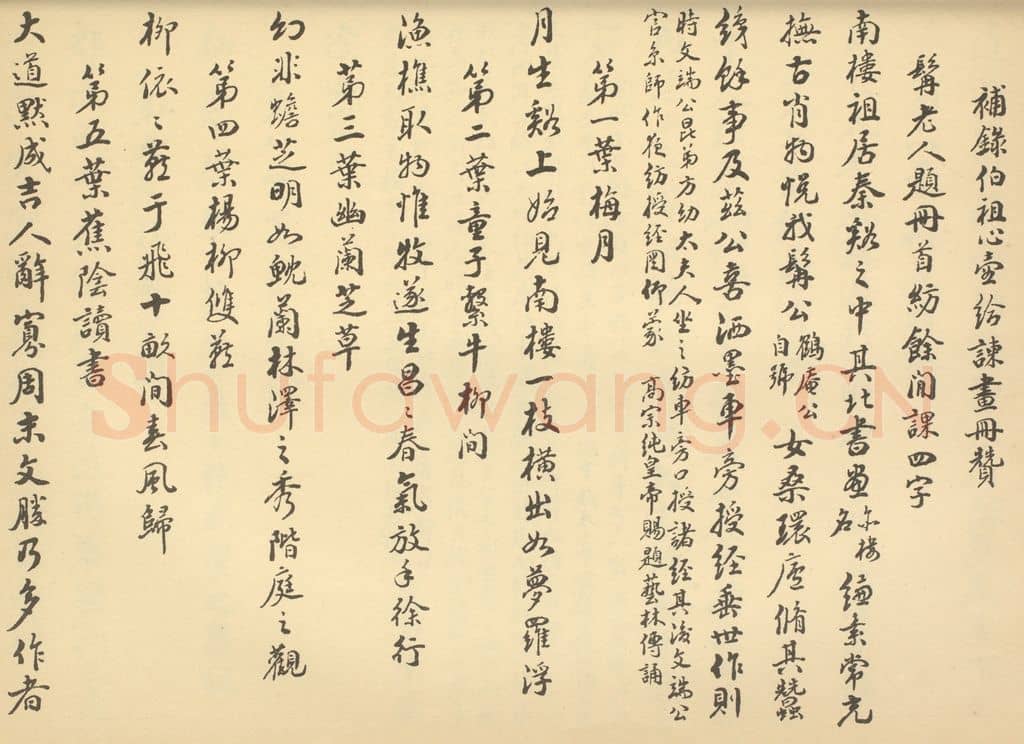 補錄伯祖心壺給諫畫冊贊
髯老人題冊首紡餘閒課四字
南樓祖居秦谿之中其北書畫亦樓名縑素常充
撫古肖物悅我髯公鶴庵公自號女桑環廬脩其蠶
績餘事及茲公喜洒墨車旁授經垂世作則
時文端公昆弟方幼太夫人坐之紡車旁口授諸經其後文端公
官京師作夜紡授經圖仰蒙 高宗純皇帝賜題藝林傳誦
第一葉梅月
月生谿上始見南樓一枝橫出如夢羅浮
第二葉童子繫牛柳間
漁樵取物惟牧遂生昌〻春氣放手徐行
第三葉幽蘭芝草
幻非蟾芝明如鮸蘭林澤之秀階庭之觀
第四葉楊柳雙燕
柳依〻燕于飛十畝間春風歸
第五葉蕉陰讀書
大道默成吉人辭寡周末文勝乃多作者
Shufawang.CN